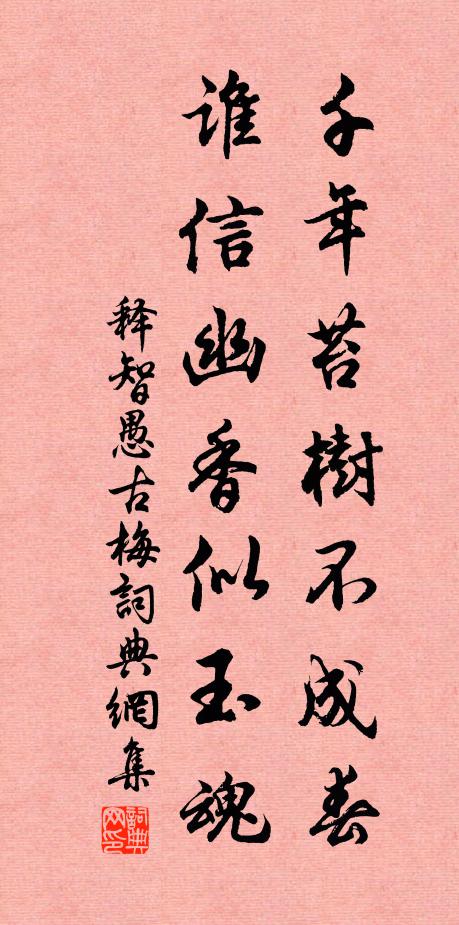 千年苔樹不成春
誰信幽香似玉魂
释智愚古梅詞典網集
詞典网印